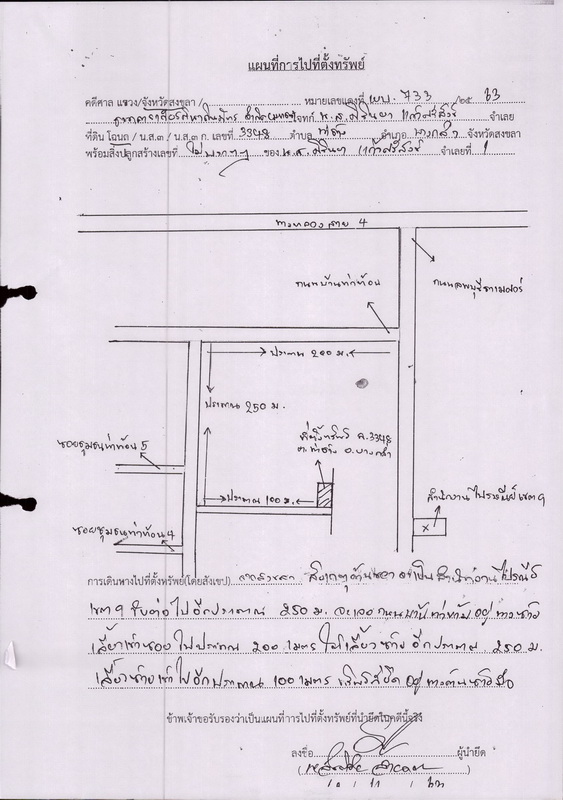 แผนที่การไปที่ตั้งทรัพย์
คดีศาล แขวง/จังหวัดสงขลา / หมายเลขแดงที่ ผบ. 733 /๒๕ 63
โจทก์ น.ส. จำเลย
ที่ดิน โฉนด / น.ส.๓ / น.ส.๓ ก. เลขที่ 3348 ตำบล ท่าช้าง อำเภอ บางกล่ำ จังหวัดสงขลา
พร้อมสิ่งปลูกสร้างเลขที่ ของ น.ส. จำเลยที่ 1
ทางหลวงสาย 4
ถนนบ้านท่าท้อน
ถนนลพบุรีราเมศวร์
ประมาณ 200 ม.
ประมาณ 250 ม.
ที่ตั้งทรัพย์ ฉ.3348
ต.ท่าช้าง อ.บางกล่ำ
ซอยชุมชนท่าท้อน 5
ประมาณ 100 ม.
สำนักงานไปรษณีย์เขต 9
X
ซอยชุมชนท่าท้อน 4
การเดินทางไปที่ตั้งทรัพย์(โดยสังเขป) จากสงขลา สังเกตุด้านขวา จะเป็นสำนักงานไปรษณีย์
เขต 9 ขับต่อไปอีกประมาณ 250 ม. จะเจอถนนบ้านท่าท้อน อยู่ทางซ้าย
เลี้ยวเข้าซอยไปประมาณ 200 เมตร เลี้ยวซ้าย อีกประมาณ 250 ม.
เลี้ยวซ้ายเข้าไปอีกประมาณ 100 เมตร ทรัพย์ที่ยึดอยู่ทางด้านซ้ายมือ
ข้าพเจ้าขอรับรองว่าเป็นแผนที่การไปที่ตั้งทรัพย์ที่นำยึดในคดีนี้จริง
ลงชื่อ ผู้นำยึด